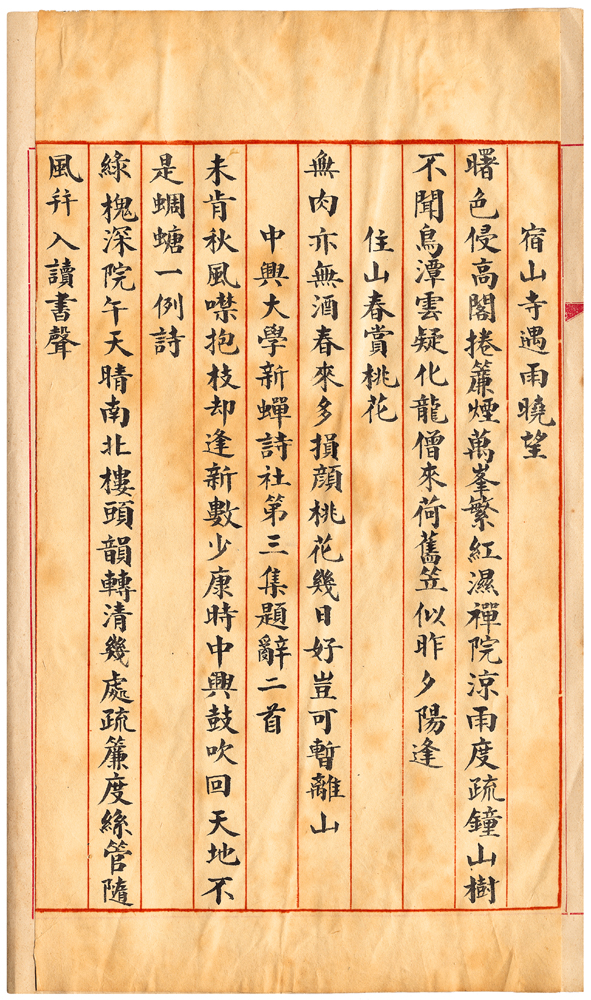 宿山寺遇雨曉望
曙色侵高閣捲簾煙萬峯繁紅濕禪院涼雨度疏鐘山樹
不聞鳥潭雲疑化龍僧來荷舊笠似昨夕陽逢
住山春賞桃花
無肉亦無酒春來多損顏桃花幾日好豈可暫離山
中興大學新蟬詩社第三集題辭二首
未肯秋風噤抱枝却逢新數少康時中興鼓吹回天地不
是蜩螗一例詩
綠槐深院午天晴南北樓頭韻轉清幾處疏簾度絲管隨
風幷入讀書聲